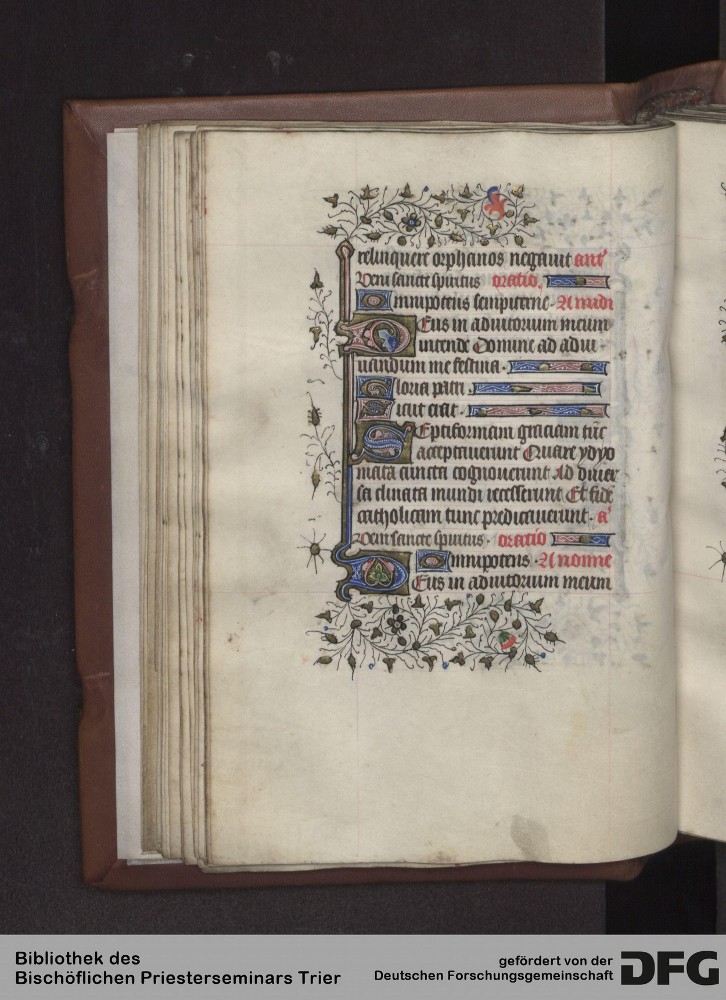 relinquere orphanos negauit ant'
Veni sancte spiritus oratio.
Omnipotens sempiterne. A midi
Deus in adiutorium meum
intende Domine ad adiu-
uandum me festina.
Gloria patri.
Sicut erat.
Septiformam graciam tūc
acceptauerunt Quare ydyo
mata cuncta cognouerunt Ad diuer
sa climata mundi recesserunt Et fidē
catholicam tunc predicauerunt. a'
Veni sancte spiritus. oratio
Omnipotens. A nonne
Deus in adiutorium meum
Bibliothek des
Bischöflichen Priesterseminars Trier
gefördert von der
Deutschen Forschungsgemeinschaft
DFG